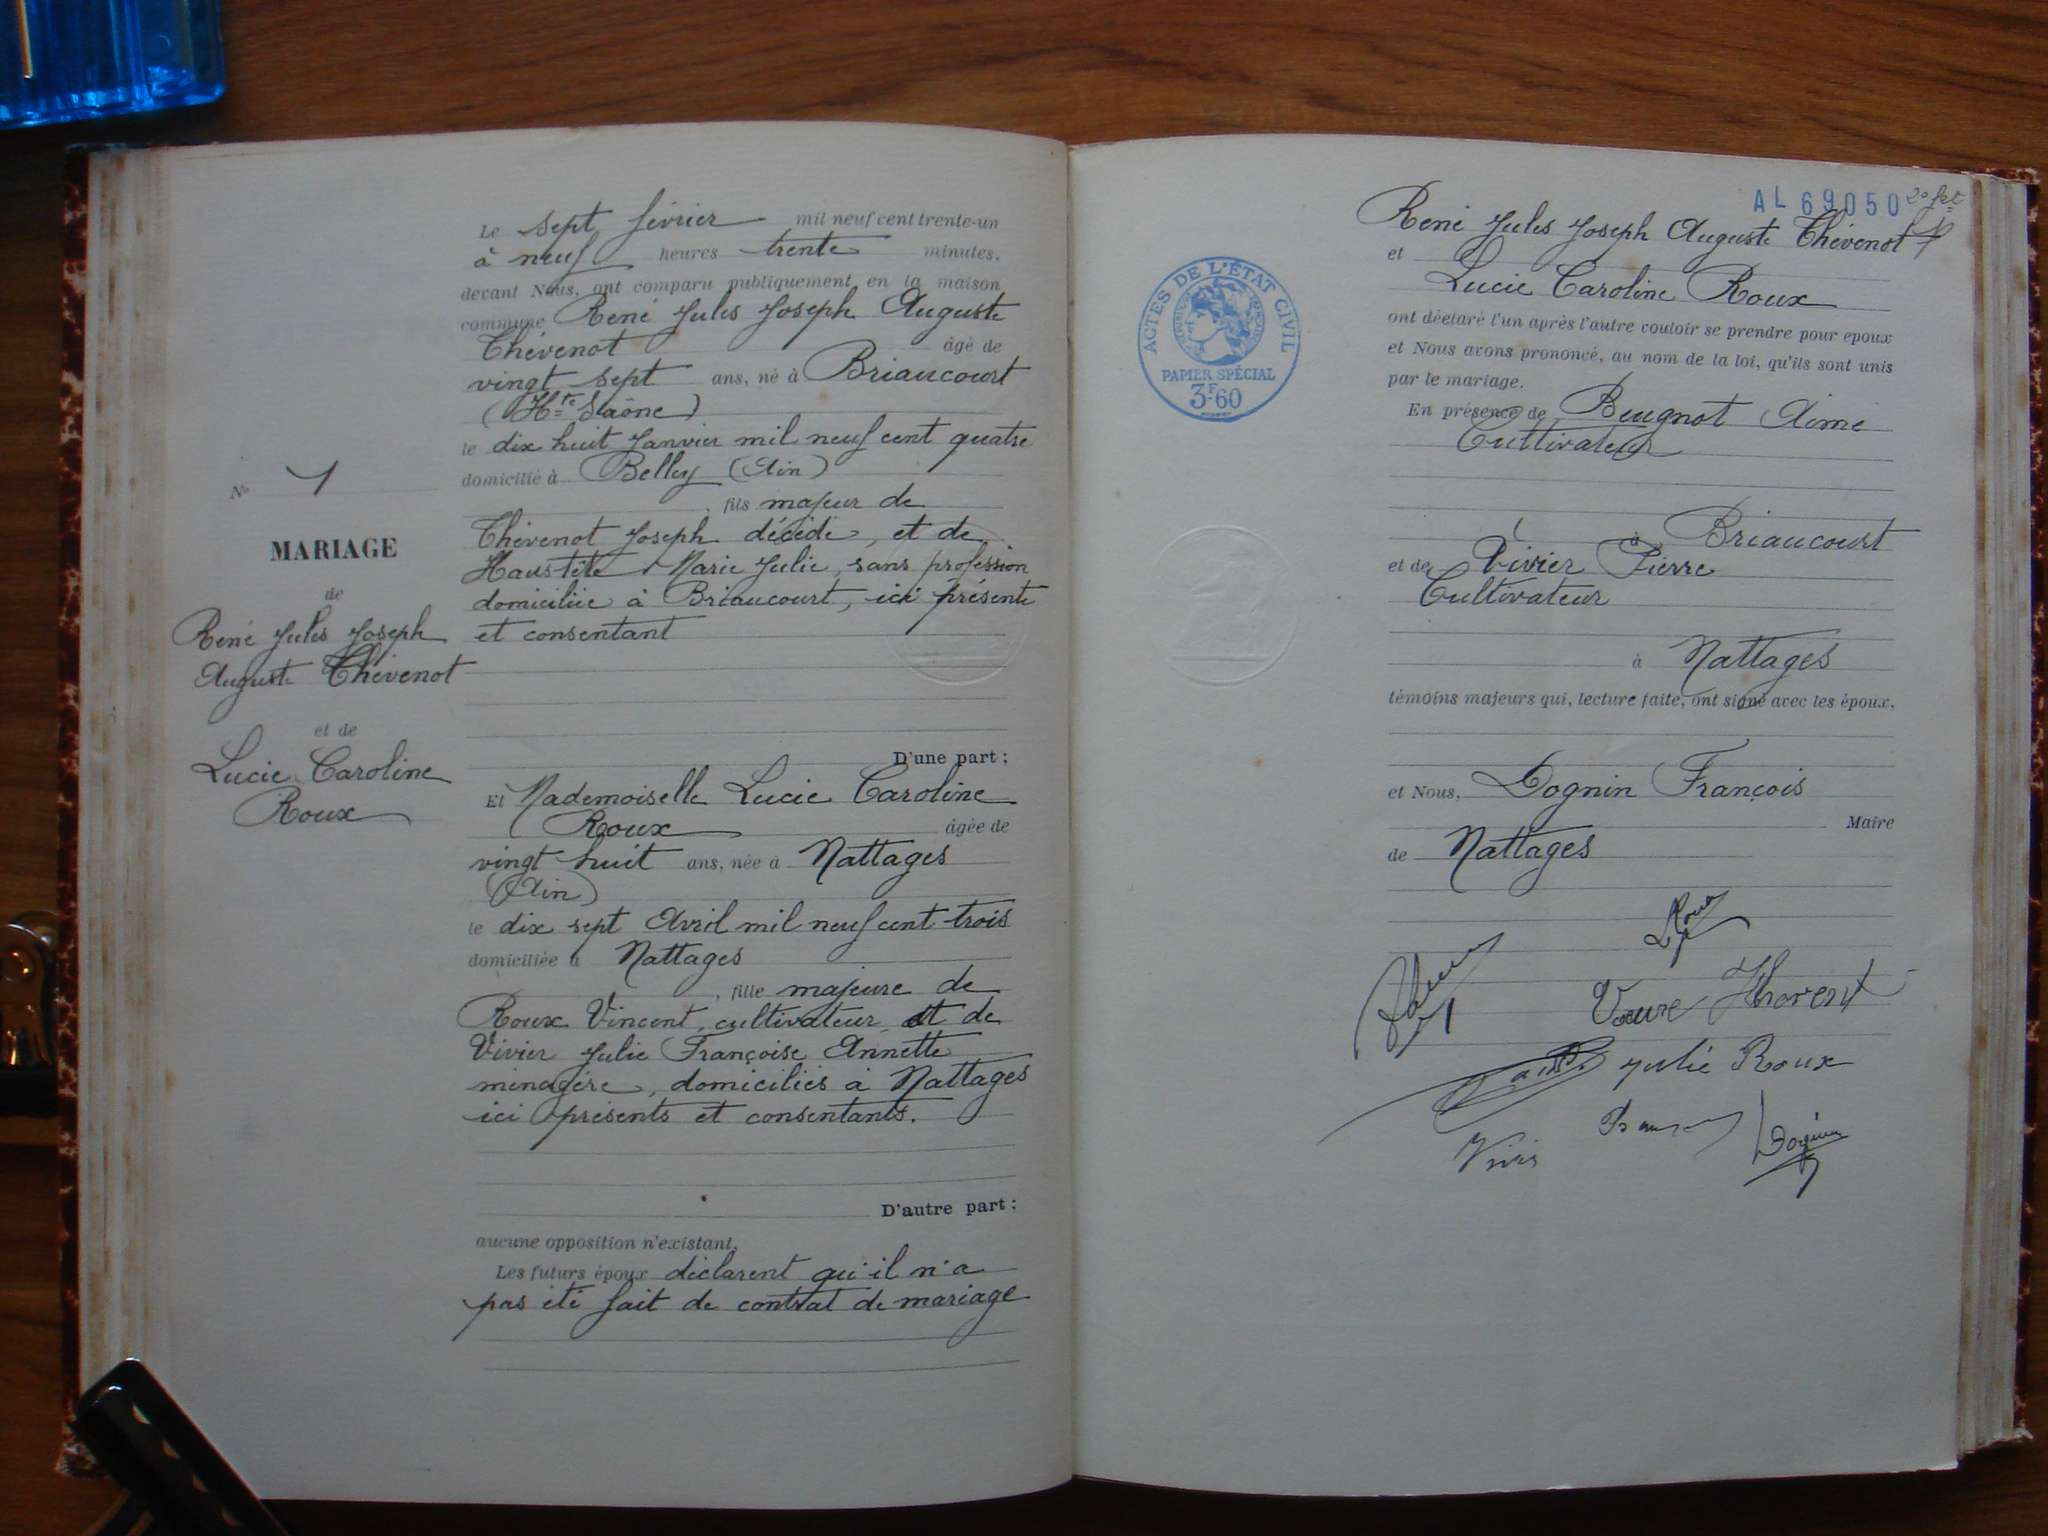 Le sept février mil neuf cent trente-un
à neuf heures trente minutes,
devant Nous, ont comparu publiquement en la maison
commune René Jules Joseph Auguste
Thévenot âgé de
vingt sept ans, né à Briaucourt
(Hte Saône)
le dix huit Janvier mil neuf cent quatre
domicilié à Belley (Ain)
, fils majeur de
Thévenot Joseph décédé, et de
Haustête Marie Julie, sans profession
domiciliée à Briaucourt, ici présente
et consentant
No 1
MARIAGE
de
René Jules Joseph
Auguste Thévenot
et de
Lucie Caroline
Roux
D'une part ;
Et Mademoiselle Lucie Caroline
Roux âgée de
vingt huit ans, née à Nattages
(Ain)
le dix sept Avril mil neuf cent trois
domiciliée à Nattages
, fille majeure de
Roux Vincent, cultivateur et de
Vivier Julie Françoise Annette
ménagère, domiciliés à Nattages
ici présents et consentants.
D'autre part ;
aucune opposition n'existant,
Les futurs époux déclarent qu'il n'a
pas été fait de contrat de mariage
AL 69050
René Jules Joseph Auguste Thévenot
et
Lucie Caroline Roux
ont déclaré l'un après l'autre vouloir se prendre pour époux
et Nous avons prononcé, au nom de la loi, qu'ils sont unis
par le mariage.
ACTES DE L'ÉTAT CIVIL
PAPIER SPÉCIAL
3F.60
En présence de Beugnot Aimé
Cultivateur
à Briaucourt
et de Vivier Pierre
Cultivateur
à Nattages
témoins majeurs qui, lecture faite, ont signé avec les époux,
et Nous, Dognin François
Maire
de Nattages
L Roux
Veuve Thevenot
Julie Roux
Dognin